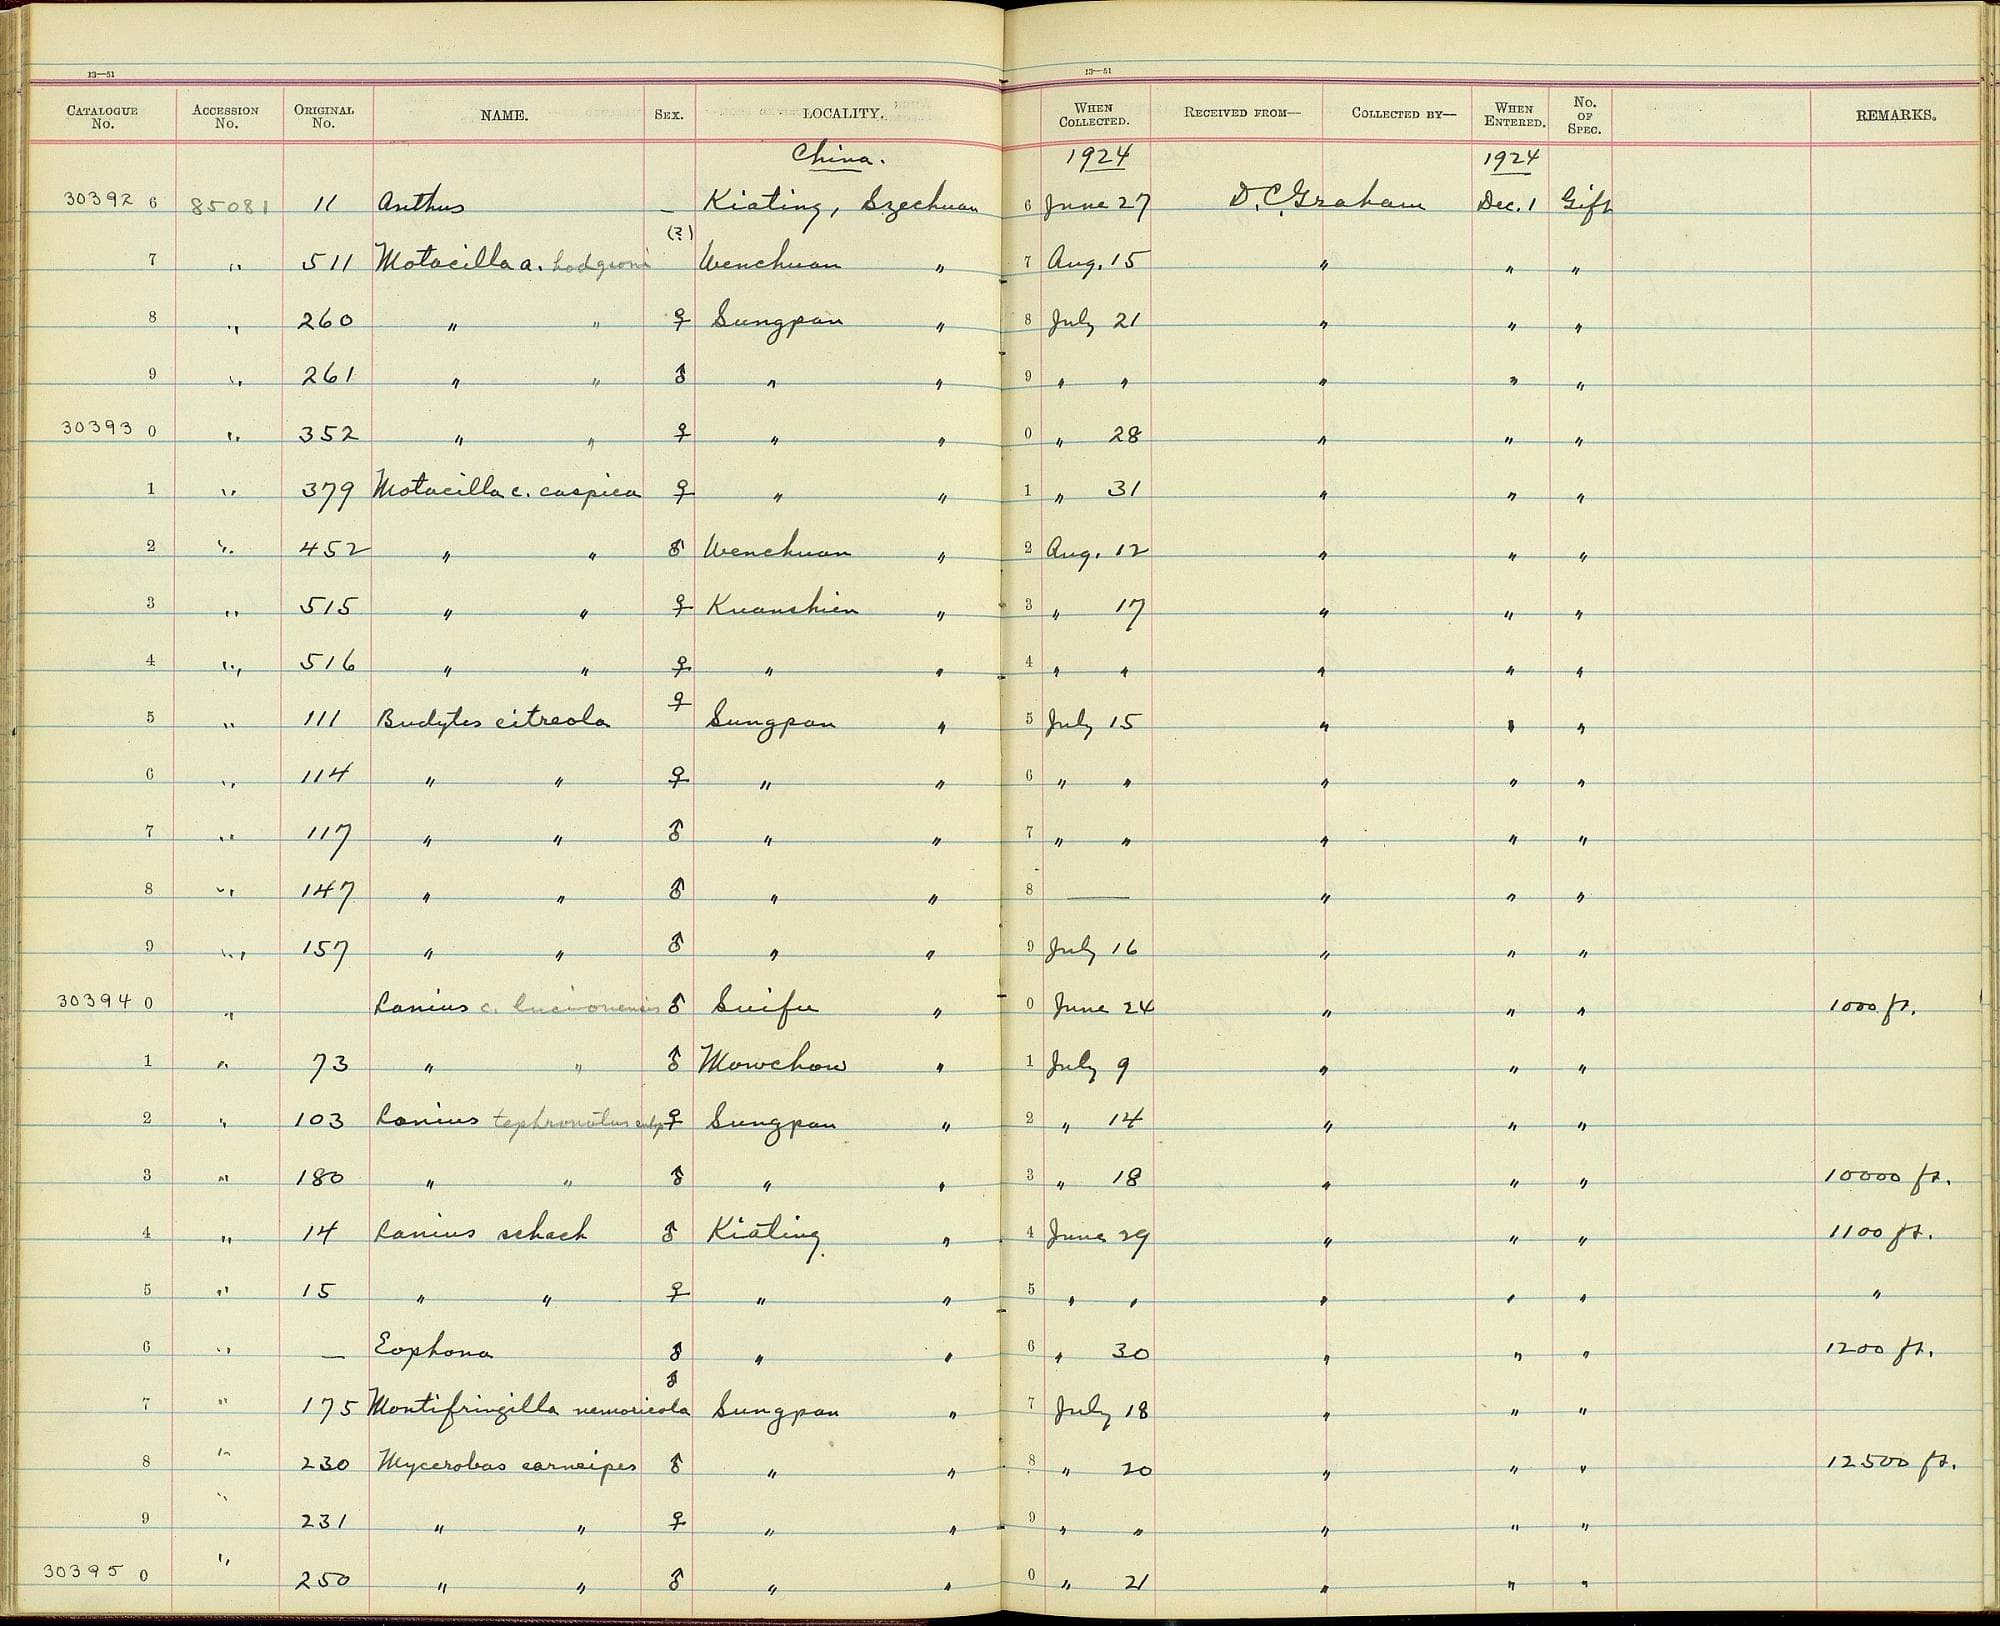 13—51 13—51
CATALOGUE No. ACCESSION No. ORIGINAL No. NAME. SEX. LOCALITY. WHEN COLLECTED. RECEIVED FROM— COLLECTED BY— WHEN ENTERED. No. OF SPEC. REMARKS.
China. 1924 1924
30392 6 85081 11 Anthus — Kiating, Szechuan 6 June 27 D. C. Graham Dec. 1 Gift
7 " 511 Motacilla a. hodgsoni (?) Wenchuan " 7 Aug. 15 " " "
8 " 260 " " ♀ Sungpan " 8 July 21 " " "
9 " 261 " " ♂ " " 9 " " " " "
30393 0 " 352 " " ♀ " " 0 " 28 " " "
1 " 379 Motacilla c. caspica ♀ " " 1 " 31 " " "
2 " 452 " " ♂ Wenchuan " 2 Aug. 12 " " "
3 " 515 " " ♀ Kuanshien " 3 " 17 " " "
4 " 516 " " ♀ " " 4 " " " " "
5 " 111 Budytes citreola ♀ Sungpan " 5 July 15 " " "
6 " 114 " " ♀ " " 6 " " " " "
7 " 117 " " ♂ " " 7 " " " " "
8 " 147 " " ♂ " " 8 — " " "
9 " 157 " " ♂ " " 9 July 16 " " "
30394 0 " Lanius c. lucionensis ♂ Suifu " 0 June 24 " " " 1000 ft.
1 " 73 " " ♂ Mowchow " 1 July 9 " " "
2 " 103 Lanius tephronotus ♀ Sungpan " 2 " 14 " " "
3 " 180 " " ♂ " " 3 " 18 " " " 10000 ft.
4 " 14 Lanius schach ♂ Kiating " 4 June 29 " " " 1100 ft.
5 " 15 " " ♀ " " 5 " " " " " "
6 " — Eophona ♂ " " 6 " 30 " " " 1200 ft.
7 " 175 Montifringilla nemoricola ♂ Sungpan " 7 July 18 " " "
8 " 230 Mycerobas carneipes ♂ " " 8 " 20 " " " 12500 ft.
9 " 231 " " ♀ " " 9 " " " " "
30395 0 " 250 " " ♂ " " 0 " 21 " " "